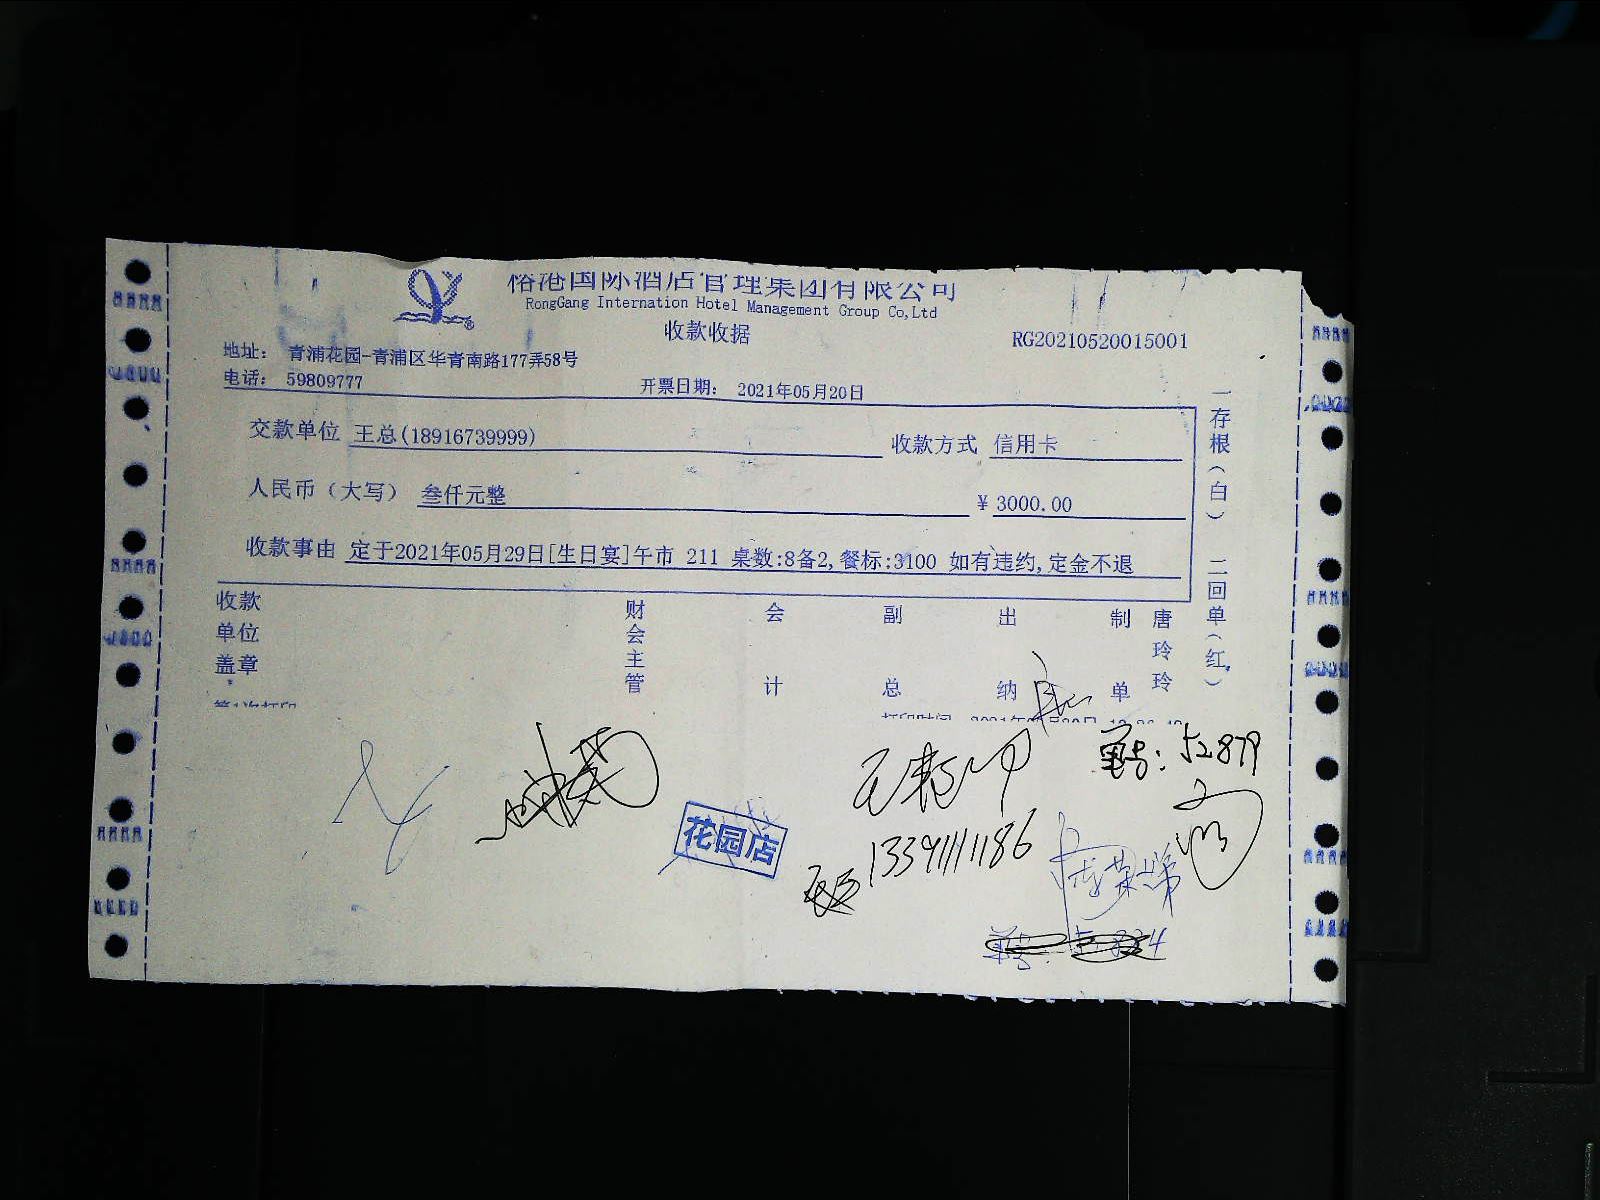 榕港国际酒店管理集团有限公司
RongGang Internation Hotel Management Group Co,Ltd
收款收据
RG20210520015001
地址: 青浦花园-青浦区华青南路177弄58号
电话: 59809777
开票日期: 2021年05月20日
交款单位 王总(18916739999)
收款方式 信用卡
人民币(大写) 叁仟元整
¥ 3000.00
收款事由 定于2021年05月29日[生日宴]午市 211 桌数:8备2,餐标:3100 如有违约,定金不退
一存根(白) 二回单(红)
收款单位盖章
财会主管
会计
副总
出纳
制单
唐玲玲
单号: 52879
13391111186
花园店